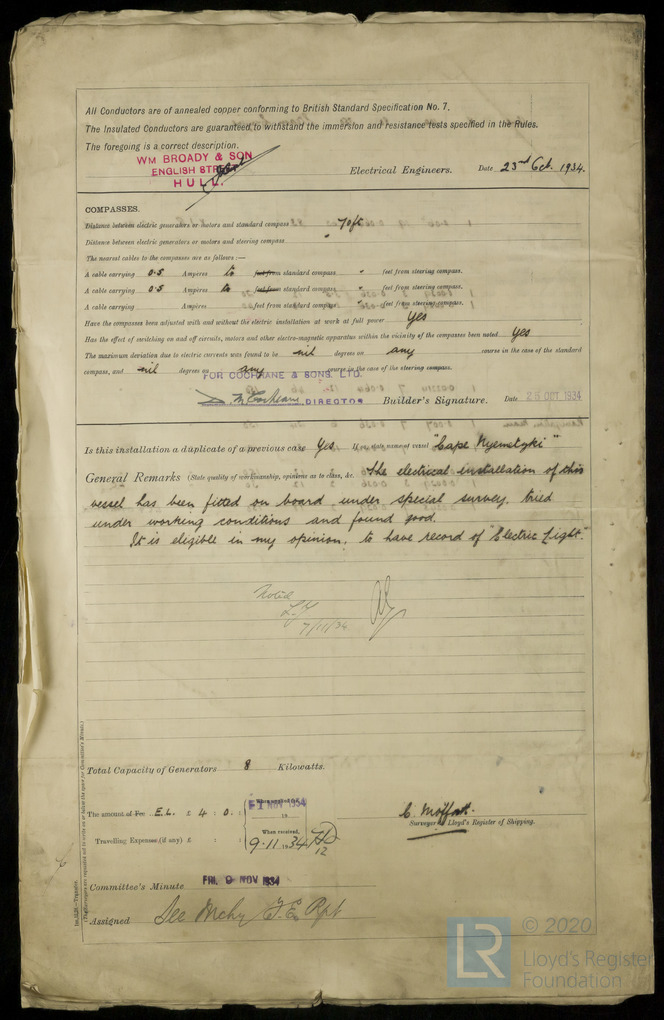 All Conductors are of annealed copper conforming to British Standard Specification No. 7.
The Insulated Conductors are guaranteed to withstand the immersion and resistance tests specified in the Rules.
The foregoing is a correct description.
WM BROADY & SON
ENGLISH STREET
HULL.
Electrical Engineers. Date 23rd Oct. 1934.
COMPASSES.
Distance between electric generators or motors and standard compass 70ft
Distance between electric generators or motors and steering compass "
The nearest cables to the compasses are as follows :—
A cable carrying 0.5 Amperes to feet from standard compass " feet from steering compass.
A cable carrying 0.5 Amperes to feet from standard compass " feet from steering compass.
A cable carrying Amperes feet from standard compass feet from steering compass.
Have the compasses been adjusted with and without the electric installation at work at full power Yes
Has the effect of switching on and off circuits, motors and other electro-magnetic apparatus within the vicinity of the compasses been noted Yes
The maximum deviation due to electric currents was found to be nil degrees on any course in the case of the standard
compass, and nil degrees on any course in the case of the steering compass.
FOR COCHRANE & SONS, LTD.
DIRECTOR Builder's Signature. Date 26 OCT 1934
Is this installation a duplicate of a previous case Yes If so, state name of vessel "Cape
General Remarks (State quality of workmanship, opinions as to class, &c. The electrical installation of this
vessel has been fitted on board under special survey, tried
under working conditions and found good.
It is eligible in my opinion, to have record of "Electric Light."
Noted
7/11/34
Total Capacity of Generators 8 Kilowatts.
The amount of Fee E.L. £ 4 : 0 :
1 NOV 1934
19
C. Moffat.
Surveyor Lloyd's Register of Shipping.
Travelling Expenses (if any) £ :
When received,
9.11.1934
Committee's Minute FRI. 9 NOV 1934
Assigned See Mchy F.E. Rpt
LR © 2020
Lloyd's Register
Foundation